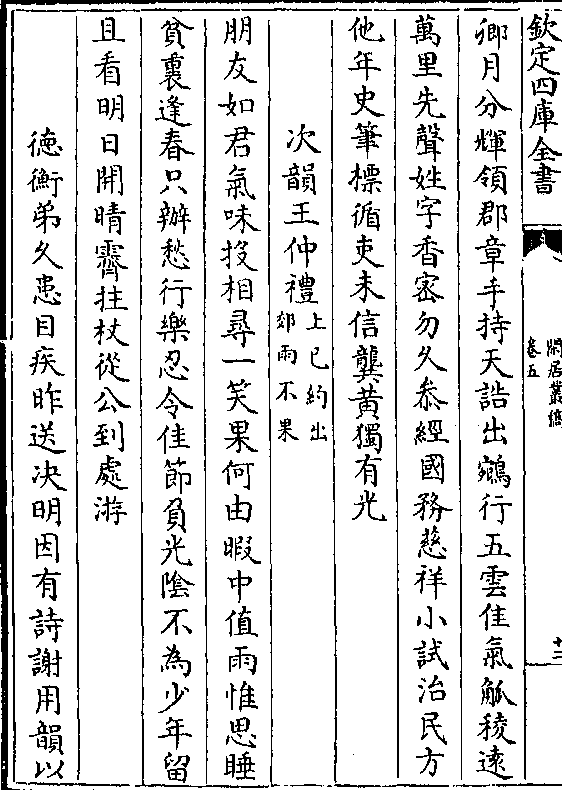 欽定四庫全書
閑居叢稿
卷五
十三
卿月分輝領郡章手持天誥出鵷行五雲佳氣觚稜遠
萬里先聲姓字香密勿久叅經國務慈祥小試治民方
他年史筆標循吏未信龔黃獨有光
次韻王仲禮上已約出郊雨不果
朋友如君氣味投相尋一笑果何由暇中值雨惟思睡
貧裏逢春只辦愁行樂忍令佳節負光陰不為少年留
且看明日開晴霽拄杖從公到處游
徳衡弟久患目疾昨送决明因有詩謝用韻以